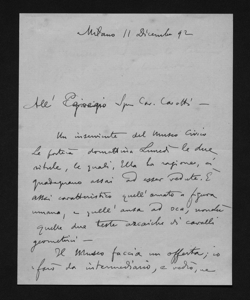 Milano 11 Dicembre 92
All' Egregio Sig. Cav. Casotti —
Un inserviente del Museo Civico
Le porterà domattina Lunedì le due
situle, le quali, Ella ha ragione, ci
guadagnano assai ad esser vedute. È
assai caratteristico quell'ansato a figura
umana, e quell'ansa ad oca, nonché
quelle due teste arcaiche di cavalli
geometrici —
Il Museo faccia un'offerta; io
farò da intermediario, e vedrò, se